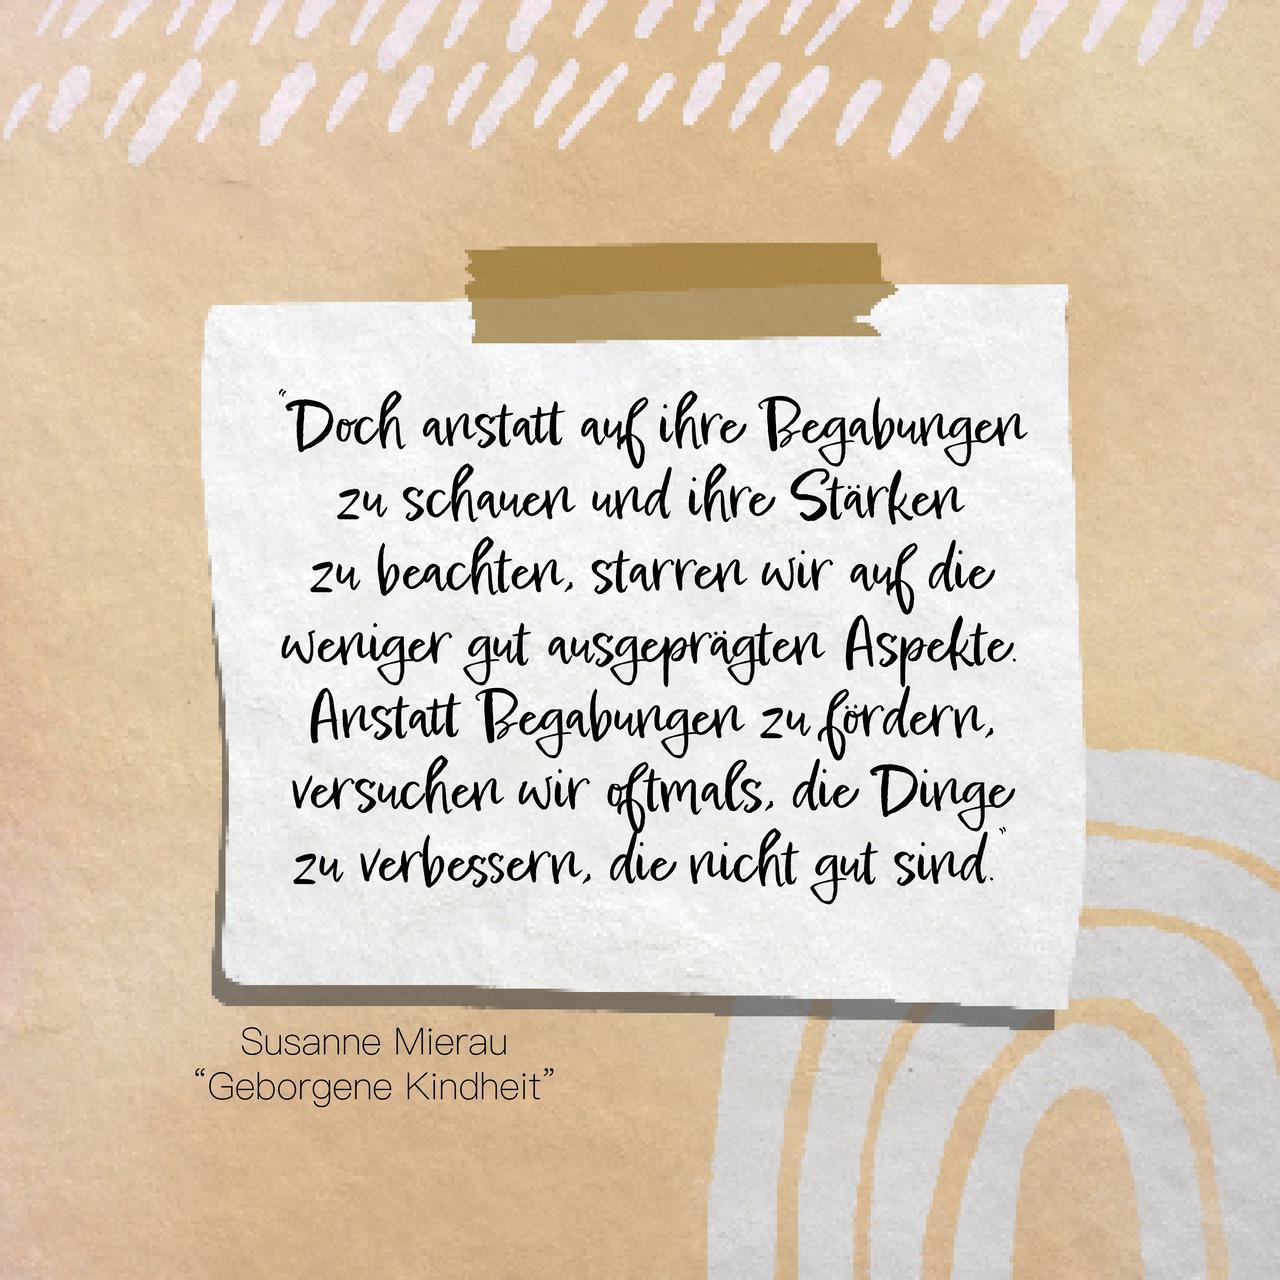 "Doch anstatt auf ihre Begabungen
zu schauen und ihre Stärken
zu beachten, starren wir auf die
weniger gut ausgeprägten Aspekte.
Anstatt Begabungen zu fördern,
versuchen wir oftmals, die Dinge
zu verbessern, die nicht gut sind."
Susanne Mierau
“Geborgene Kindheit”